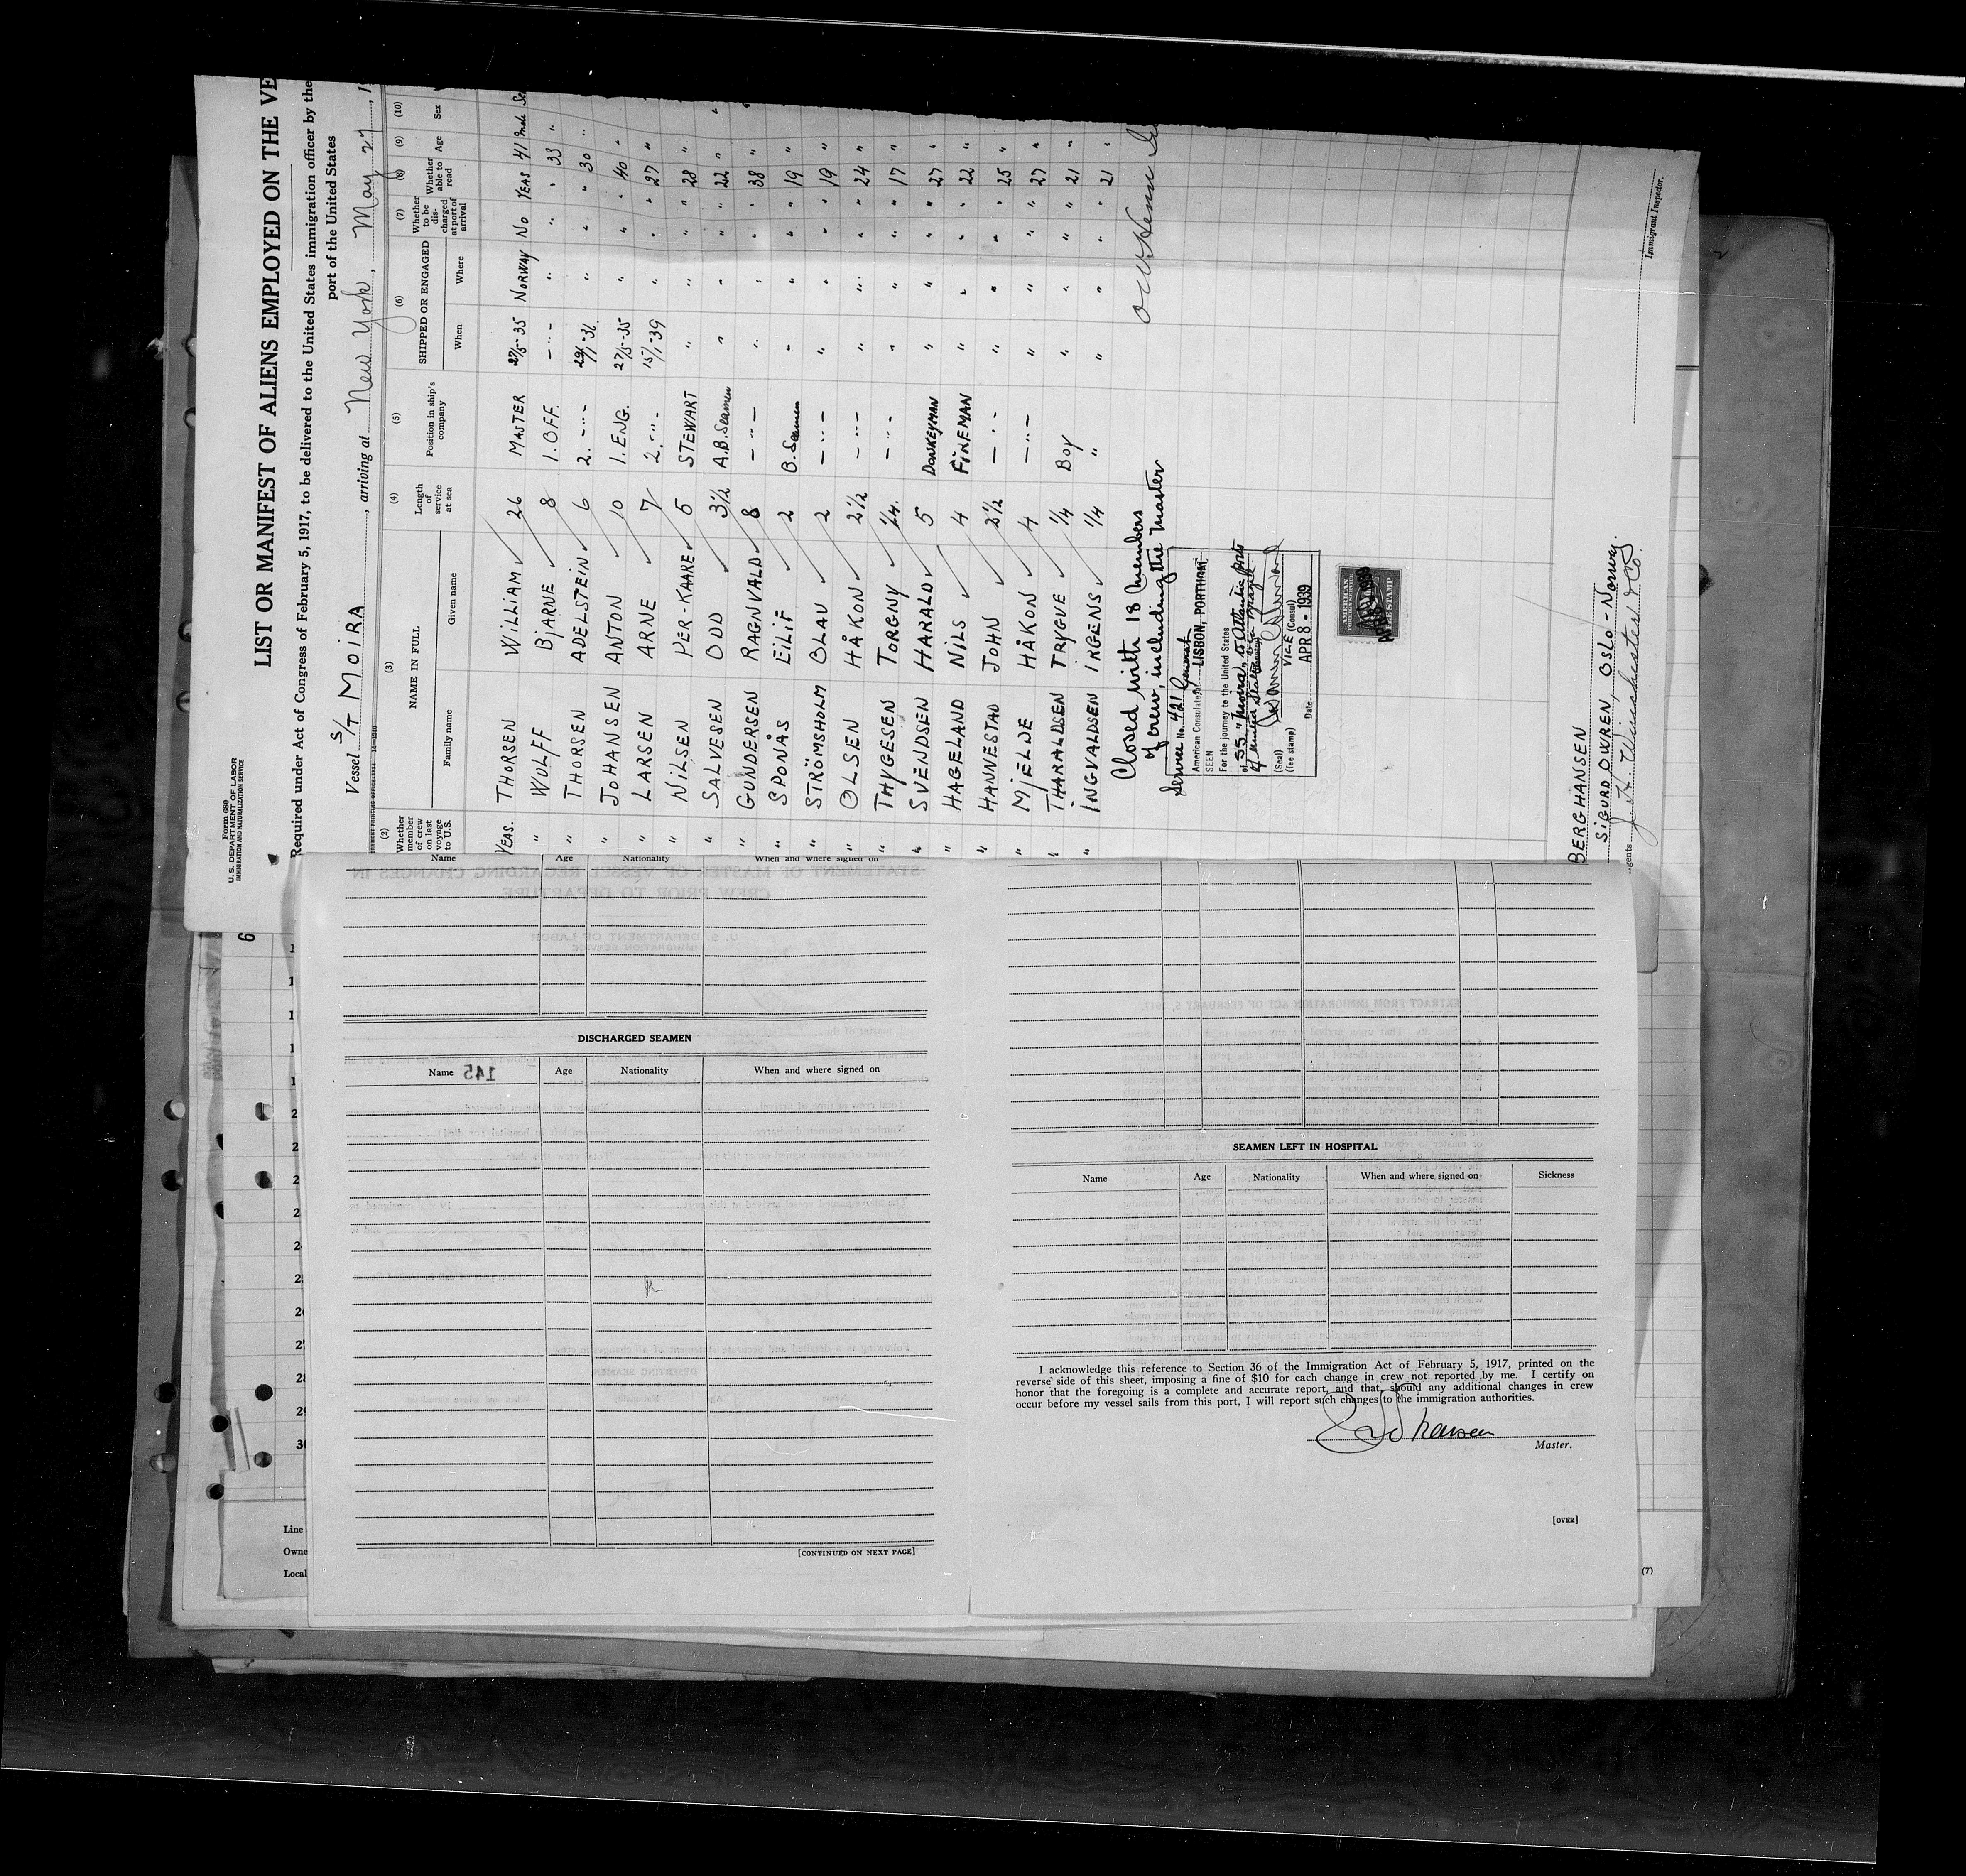 Form 680
U. S. DEPARTMENT OF LABOR
IMMIGRATION AND NATURALIZATION SERVICE
LIST OR MANIFEST OF ALIENS EMPLOYED ON THE VE
Required under Act of Congress of February 5, 1917, to be delivered to the United States immigration officer by the
port of the United States
Vessel S/T MOiRA, arriving at New York, May 27, 1
(2) (3) (4) (5) (6) (7) (8) (9) (10)
Whether member of crew on last voyage to U.S. NAME IN FULL Family name Given name Length of service at sea Position in ship's company SHIPPED OR ENGAGED When Where Whether to be discharged at port of arrival Whether able to read Age Sex
YEAS. THORSEN WiLLiAM 26 MASTER 27/5-35 NORWAY NO YEAS 41 male
" WULFF BjARNE 8 1. OFF. -"- " " " 33 "
" THORSEN ADELSTEiN 6 2. -"- 29/1-36. " " " 30 "
" JOHANSEN ANTON 10 1. ENG. 27/5-35 " " " 40 "
" LARSEN ARNE 7 2. -"- 15/1-39 " " " 27 "
" NiLSEN PER-KAARE 5 STEWART " " " " 28 "
" SALVESEN ODD 3 1/2 A.B. Seamen " " " " 22 "
" GUNDERSEN RAGNVALD 8 -"- " " " " 38 "
" SPONÅS EiLiF 2 O. Seamen " " " " 19 "
" STRÖMSHOLM OLAV 2 -"- " " " " 19 "
" OLSEN HÅKON 2 1/2 -"- " " " " 24 "
" THYGESEN TORGNY 1/4. -"- " " " " 17 "
" SVENDSEN HARALD 5 DONKEYMAN " " " " 27 "
" HAGELAND NiLS 4 FiREMAN " " " " 22 "
" HANNESTAD JOHN 2 1/2 -"- " " " " 25 "
" MjELDE HÅKON 4 -"- " " " " 27 "
" THARALDSEN TRYGVE 1/4 BOY " " " " 21 "
" iNGVALDSEN iRGENS 1/4 " " " " " 21 "
Closed with 18 members
of crew, including the master
Service No. 421
American Consulate General LISBON, PORTUGAL
SEEN
For the journey to the United States
of SS. "Moira" to Atlantic ports
of United States
(Seal) VICE (Consul)
(fee stamp) Date APR 8 - 1939
AMERICAN
FEE STAMP
APR 8 1939
BERGHANSEN
SiGURD OWREN, OSLO - Norway.
gents J. H. Winchester & Co.
Immigrant Inspector.
6
Name Age Nationality When and where signed on
DISCHARGED SEAMEN
Name Age Nationality When and where signed on
145
[CONTINUED ON NEXT PAGE]
SEAMEN LEFT IN HOSPITAL
Name Age Nationality When and where signed on Sickness
I acknowledge this reference to Section 36 of the Immigration Act of February 5, 1917, printed on the
reverse side of this sheet, imposing a fine of $10 for each change in crew not reported by me. I certify on
honor that the foregoing is a complete and accurate report, and that, should any additional changes in crew
occur before my vessel sails from this port, I will report such changes to the immigration authorities.
Master.
[OVER]
28
29
30
Line
Owne
Local
(7)
STATEMENT OF MASTER OF VESSEL REGARDING CHANGES IN
CREW PRIOR TO DEPARTURE
U. S. DEPARTMENT OF LABOR
IMMIGRATION SERVICE
EXTRACT FROM IMMIGRATION ACT OF FEBRUARY 5, 1917.